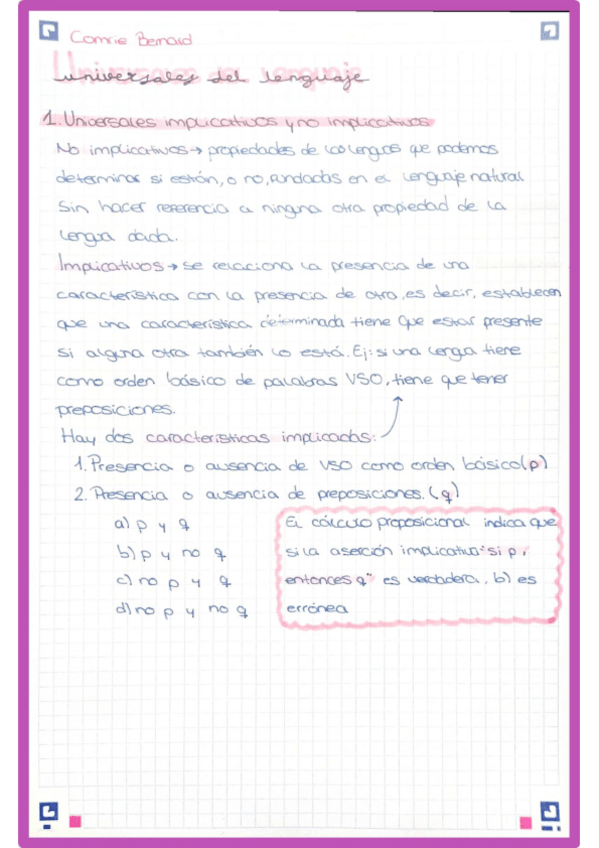 Comrie Bernard
Universales del lenguaje
1. Universales implicativos y no implicativos
No implicativos → propiedades de las lenguas que podemos
determinar si están, o no, fundadas en el lenguaje natural
sin hacer referencia a ninguna otra propiedad de la
lengua dada.
Implicativos → se relaciona la presencia de una
característica con la presencia de otra, es decir, establecen
que una característica determinada tiene que estar presente
si alguna otra también lo está. Ej: si una lengua tiene
como orden básico de palabras VSO, tiene que tener
preposiciones.
Hay dos características implicadas:
1. Presencia o ausencia de VSO como orden básico (p)
2. Presencia o ausencia de preposiciones. (q)
a) p y q
b) p y no q
c) no p y q
d) no p y no q
El cálculo proposicional indica que
si la aserción implicativa "si p,
entonces q" es verdadera, b) es
errónea